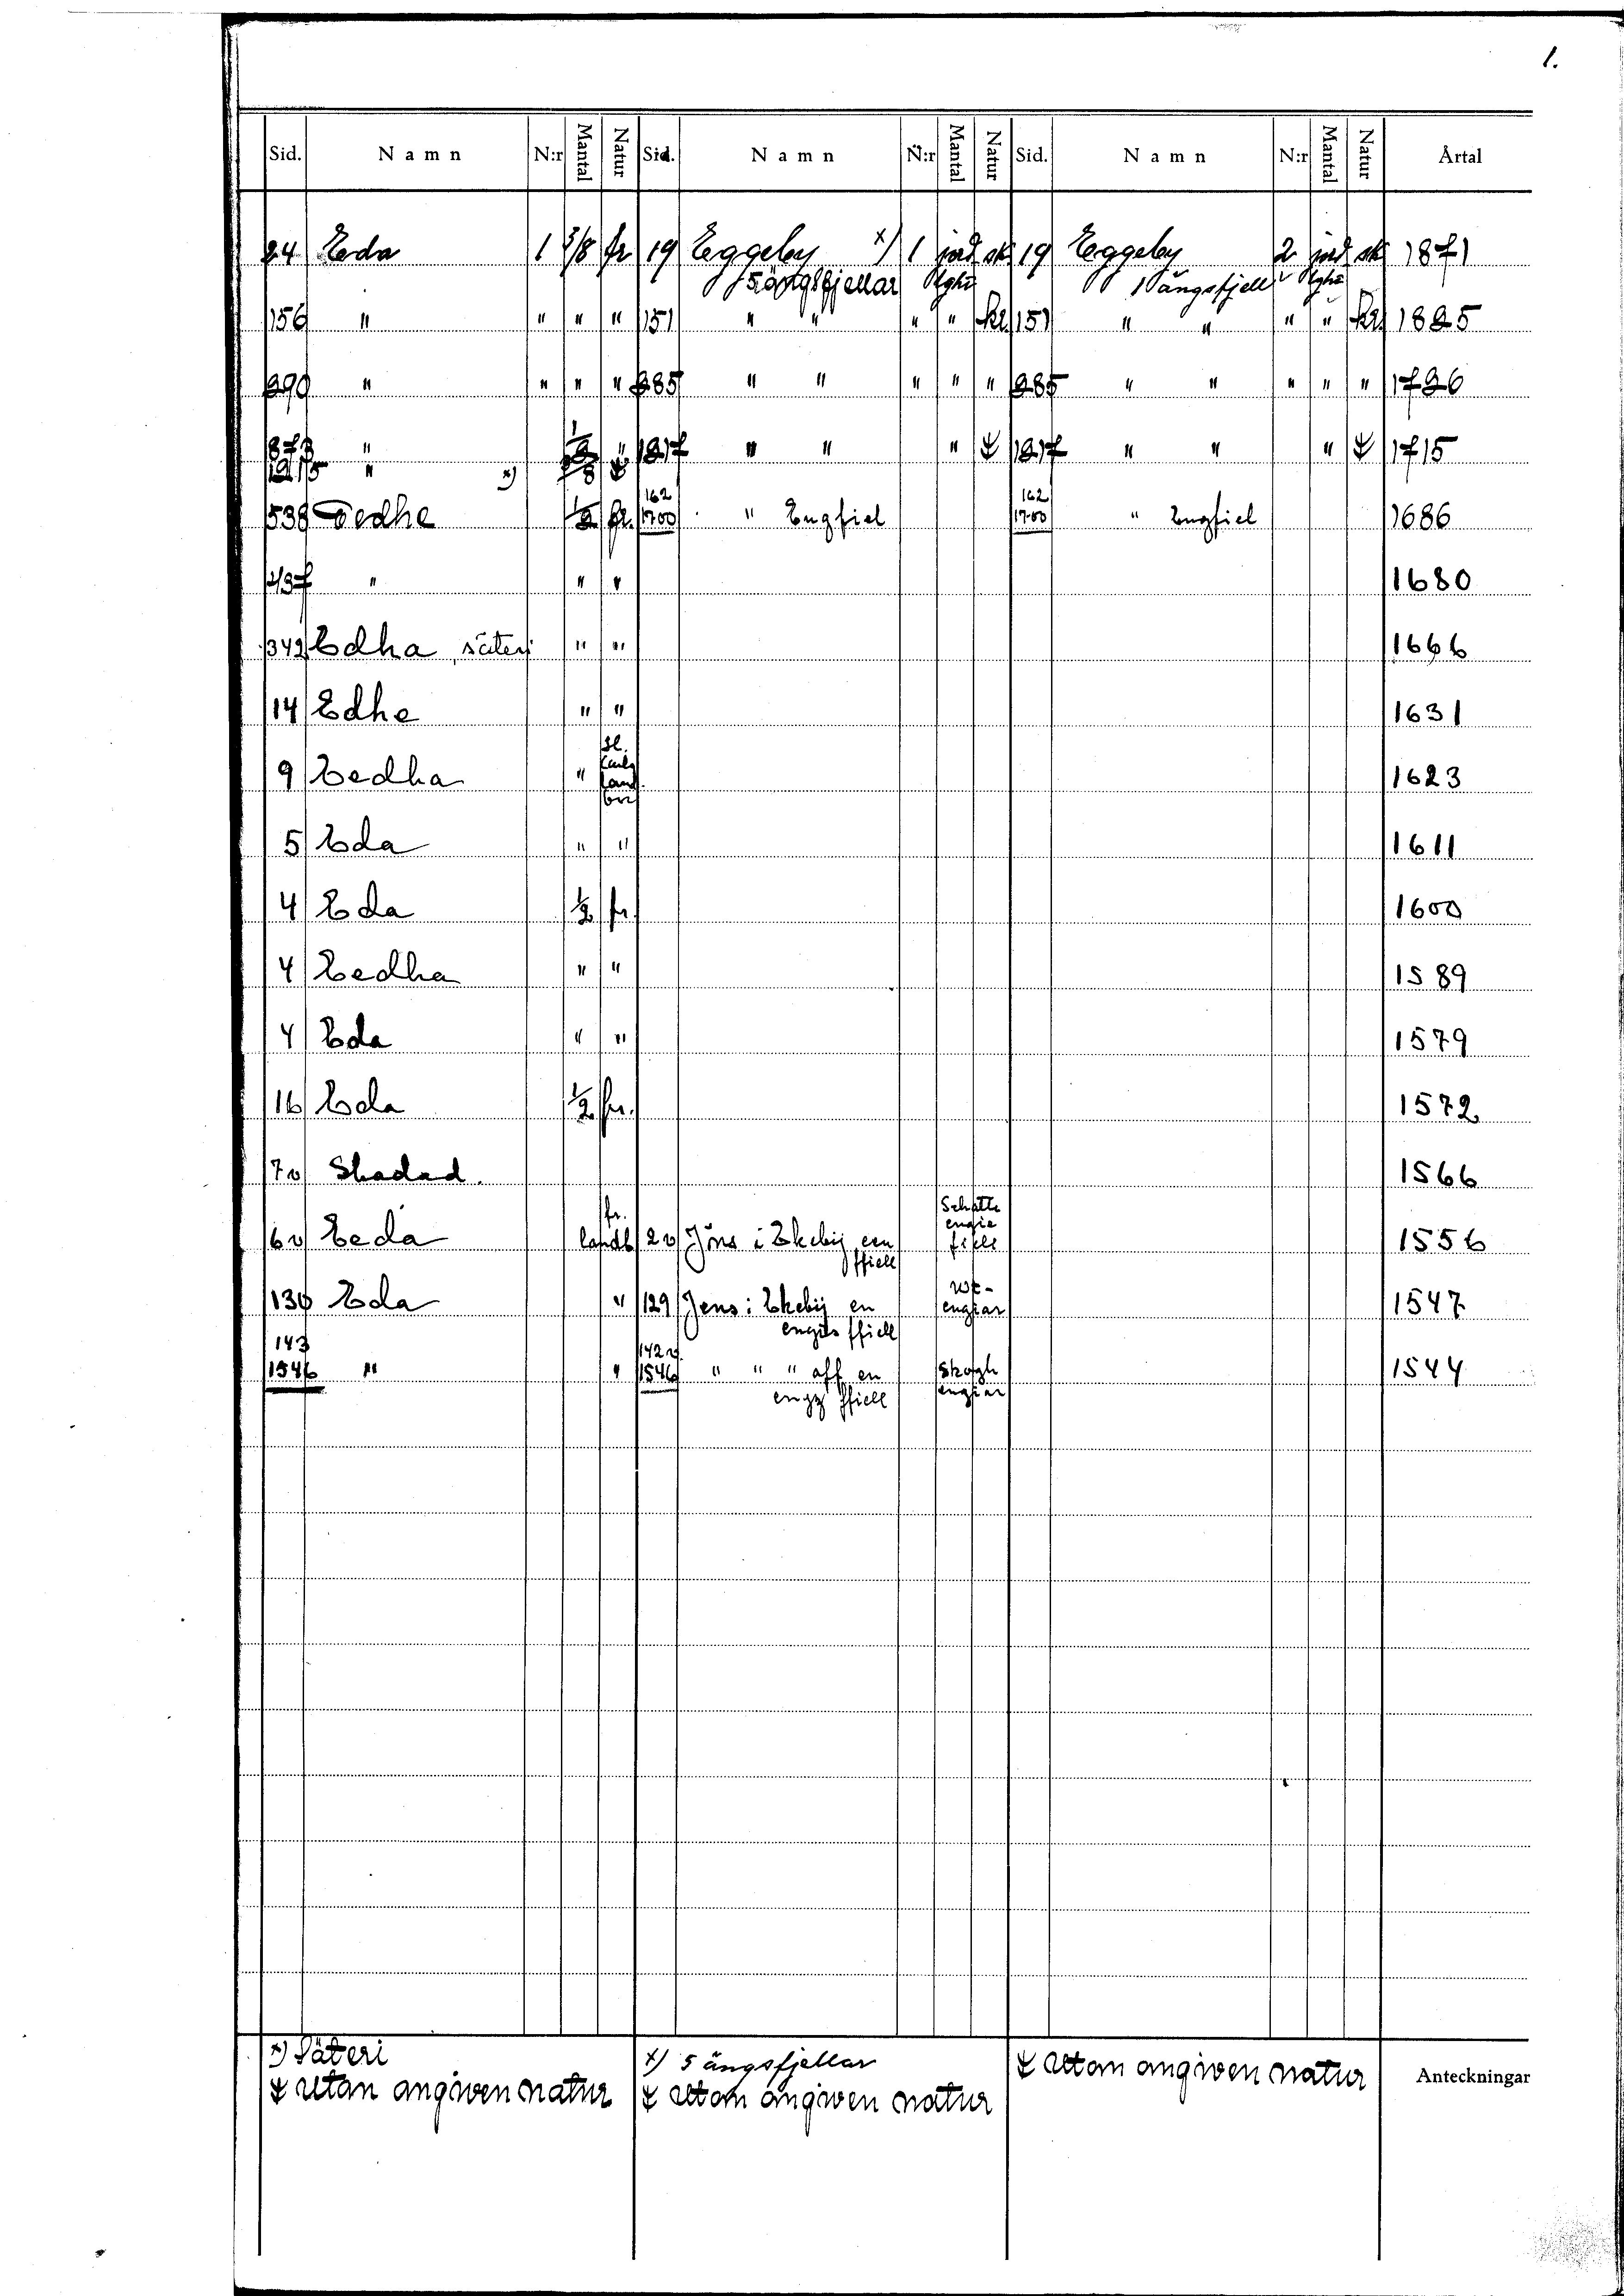 1.
Sid. Namn N:r Mantal Natur Sid. Namn N:r Mantal Natur Sid. Namn N:r Mantal Natur Årtal
24 Eda 1 3/8 fr 19 Eggeby x) 1 jord sk 19 Eggeby 2 jord sk 1871
5 ängsfjellar lghr 1 ängsfjell lghr
156 " " " " 151 " " " " kr. 151 " " " " kr. 1825
290 " " " " 285 " " " " " 285 " " " " " 1726
873 " 1/2 " 1217 " " " 1217 " " " 1715
1215 " x) 3/8
538 Eedhe 1/2 fr. 162 1700 " Engfiel 162 1700 " Engfiel 1686
437 " " " 1680
342 Edha, säteri " " 1666
14 Edhe " " 1631
9 Eedha " 1623
5 Eda " " 1611
4 Eda 1/2 fr. 1600
4 Eedha " " 1589
4 Eda " " 1579
16 Eda 1/2 fr. 1572
7v Skadad. 1566
6v Eeda fr. landb 2v Jöns i Ekebij een Schatte engie fiell 1556
ffiell
130 Eda " 129 Jens i Ekebij en wt- engiar 1547
engis ffiell
143 1546 " " 142v. 1546 " " " aff en skogh engiar 1544
engz ffiell
x) Säteri x) 5 ängsfjellar Utan angiven natur Anteckningar
Utan angiven natur Utan angiven natur